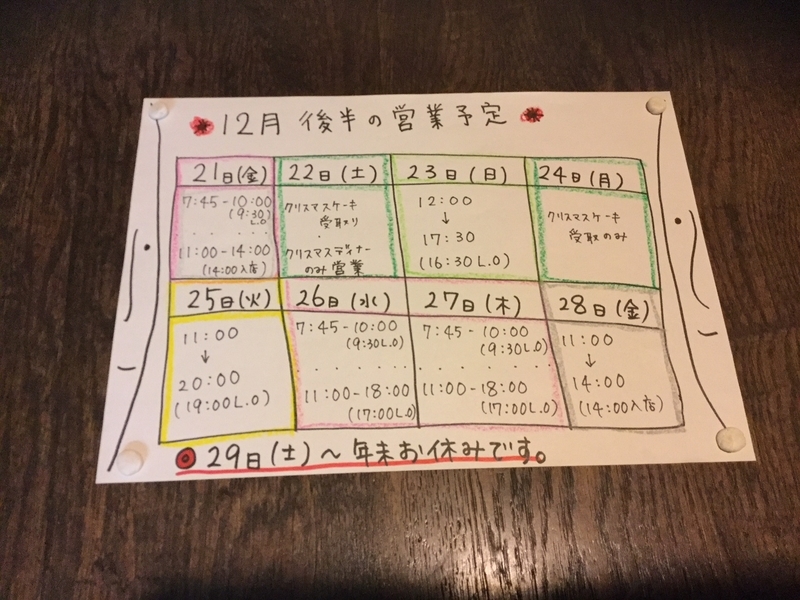 12月 後半の営業予定
21日(金)
22日(土)
23日(日)
24日(月)
7:45-10:00
(9:30
L.O)
・ ・ ・ ・
11:00-14:00
(14:00入店)
クリスマスケーキ
受取り
・
クリスマスディナー
のみ営業
12:00
↓
17:30
(16:30L.O)
クリスマスケーキ
受取のみ
25日(火)
26日(水)
27日(木)
28日(金)
11:00
↓
20:00
(19:00L.O)
7:45-10:00
(9:30L.O)
・ ・ ・ ・
11:00-18:00
(17:00L.O)
7:45-10:00
(9:30L.O)
・ ・ ・ ・
11:00-18:00
(17:00L.O)
11:00
↓
14:00
(14:00入店)
29日(土)～年末お休みです。